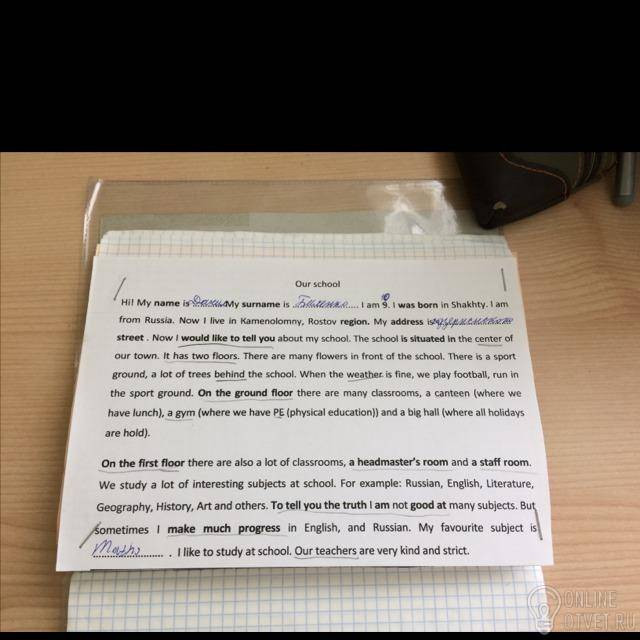 Our school
Hi! My name is Данил My surname is Биленко I am 9. I was born in Shakhty. I am
from Russia. Now I live in Kamenolomny, Rostov region. My address is
street . Now I would like to tell you about my school. The school is situated in the center of
our town. It has two floors. There are many flowers in front of the school. There is a sport
ground, a lot of trees behind the school. When the weather is fine, we play football, run in
the sport ground. On the ground floor there are many classrooms, a canteen (where we
have lunch), a gym (where we have PE (physical education)) and a big hall (where all holidays
are hold).
On the first floor there are also a lot of classrooms, a headmaster's room and a staff room.
We study a lot of interesting subjects at school. For example: Russian, English, Literature,
Geography, History, Art and others. To tell you the truth I am not good at many subjects. But
sometimes I make much progress in English, and Russian. My favourite subject is
............... . I like to study at school. Our teachers are very kind and strict.
ONLINE
OTVET.RU